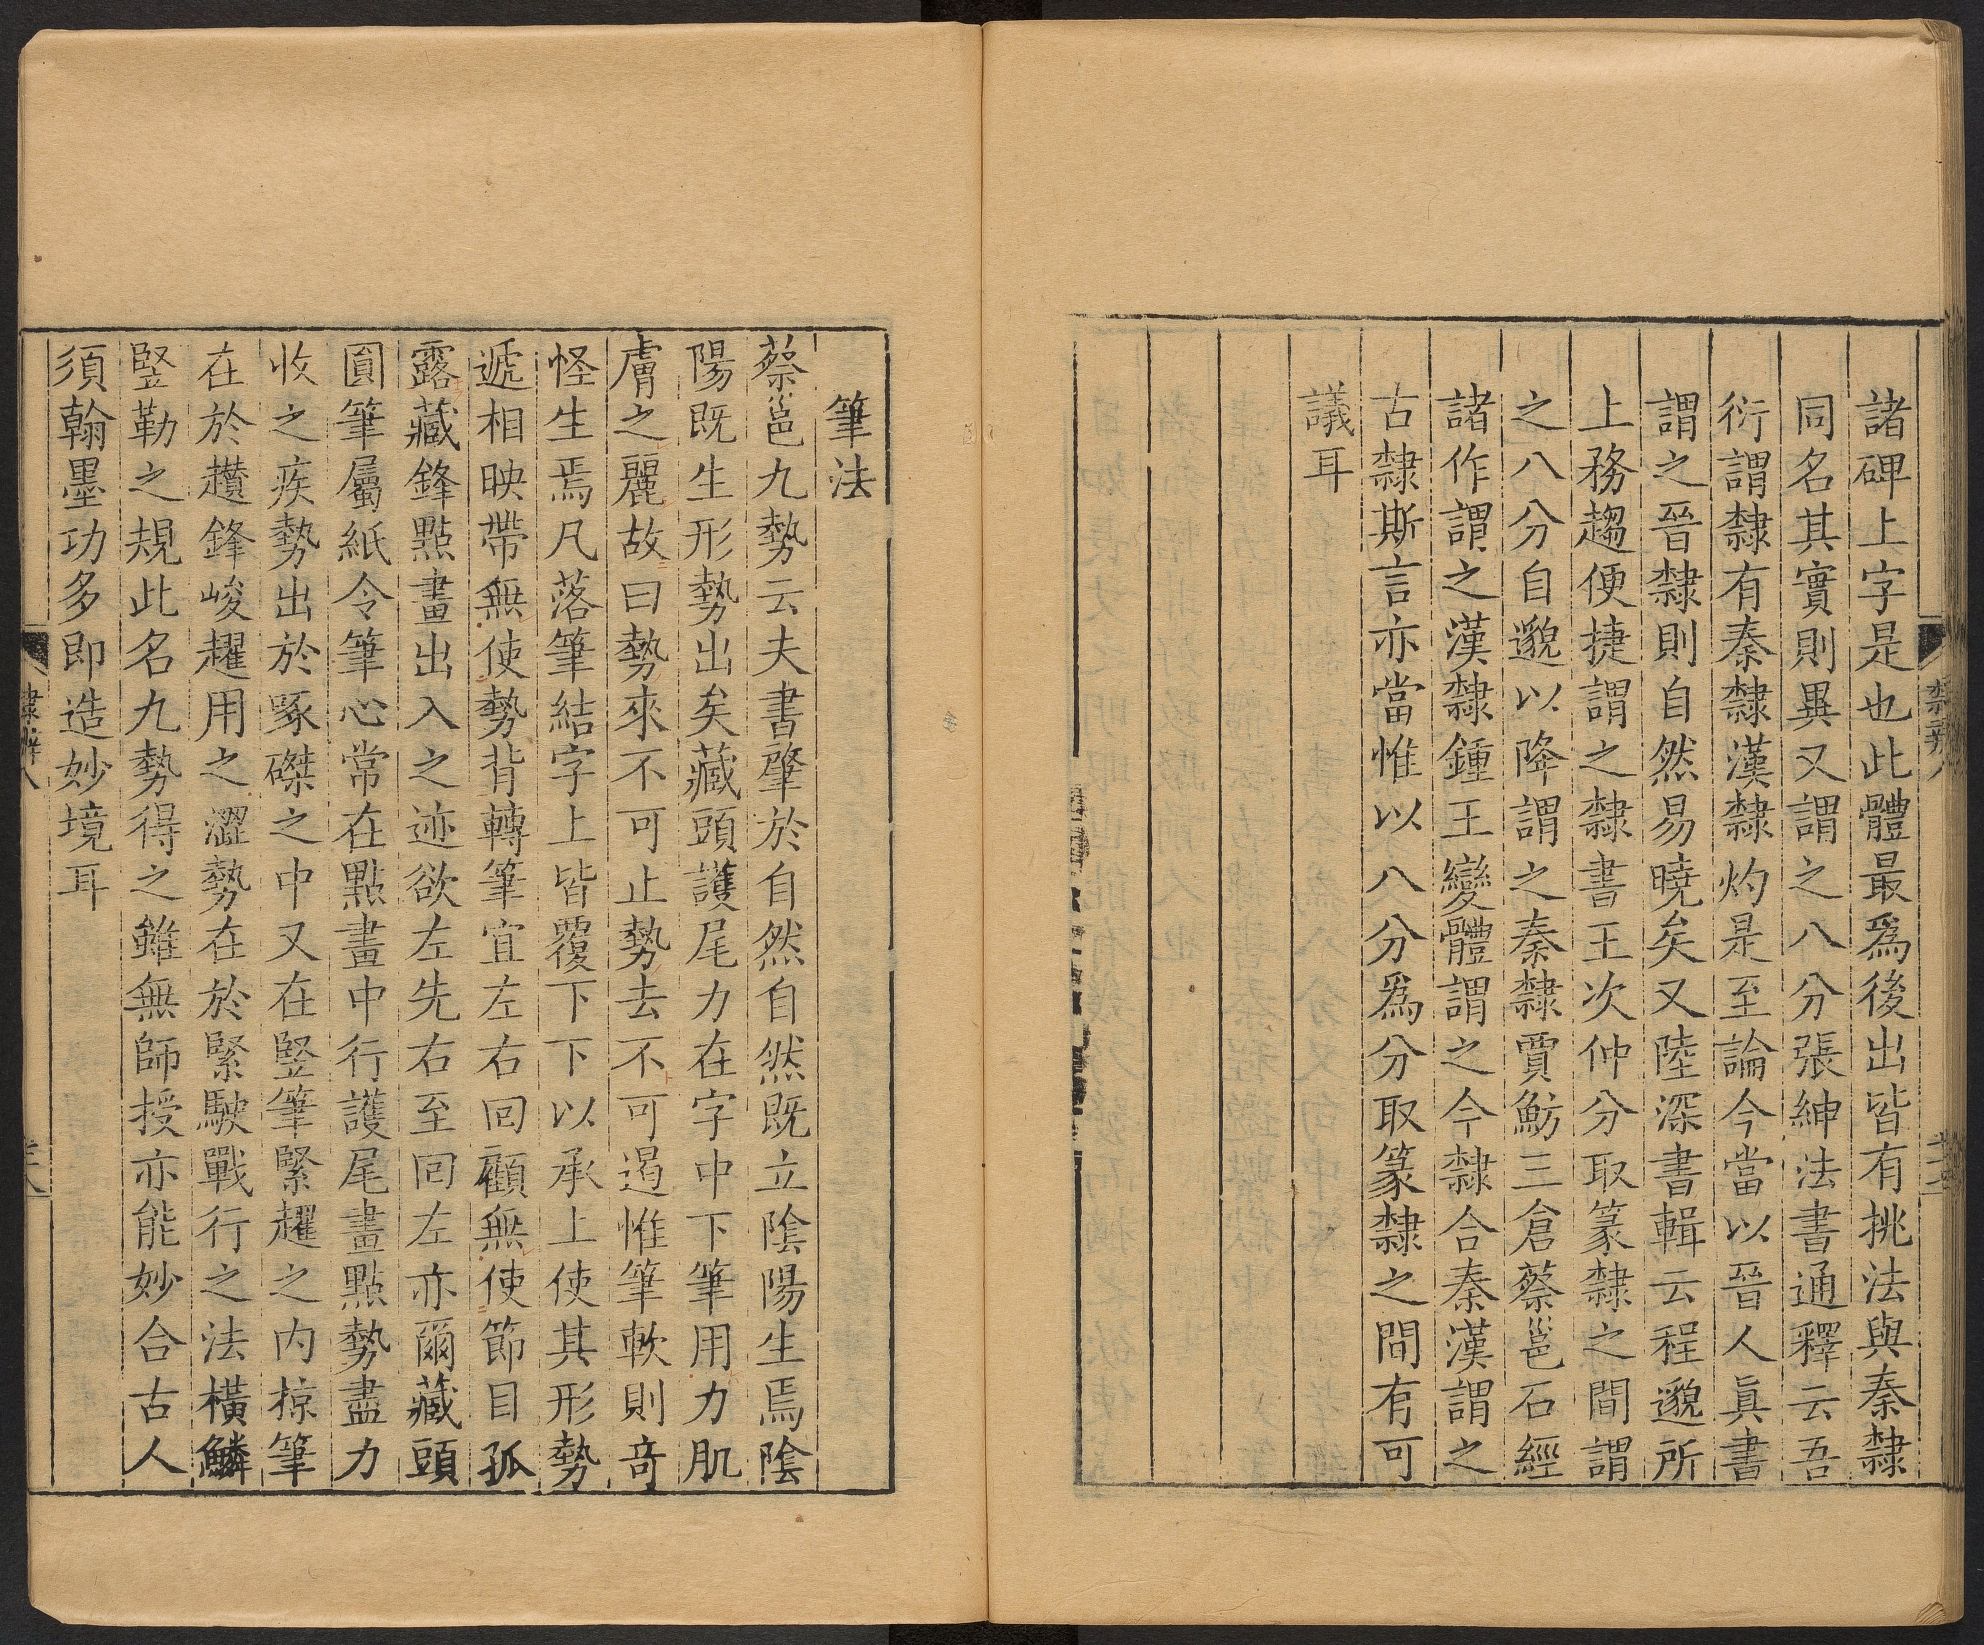 諸碑上字是也此體最爲後出皆有挑法與秦隸
同名其實則異又謂之八分張紳法書通釋云吾
衍謂隸有秦隸漢隸灼是至論今當以晉人眞書
謂之晉隸則自然易曉矣又陸深書輯云程邈所
上務趨便捷謂之隸書王次仲分取篆隸之間謂
之八分自邈以降謂之秦隸賈魴三倉蔡邕石經
諸作謂之漢隸鍾王變體謂之今隸合秦漢謂之
古隸斯言亦當惟以八分爲分取篆隸之間有可
議耳
筆法
蔡邕九勢云夫書肇於自然自然既立陰陽生焉陰
陽既生形勢出矣藏頭護尾力在字中下筆用力肌
膚之麗故曰勢來不可止勢去不可遏惟筆軟則奇
怪生焉凡落筆結字上皆覆下下以承上使其形勢
遞相映帶無使勢背轉筆宜左右回顧無使節目孤
露藏鋒點畫出入之迹欲左先右至回左亦爾藏頭
圓筆屬紙令筆心常在點畫中行護尾畫點勢盡力
收之疾勢出於啄磔之中又在竪筆緊趯之內掠筆
在於趲鋒峻趯用之澀勢在於緊駛戰行之法橫鱗
竪勒之規此名九勢得之雖無師授亦能妙合古人
須翰墨功多即造妙境耳
隸辨八